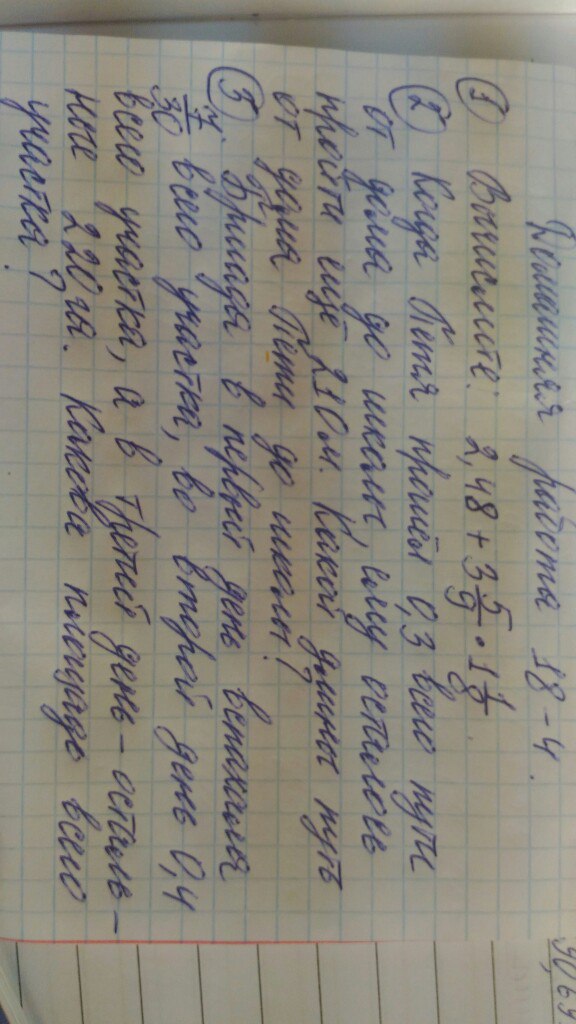 Домашняя работа 18-4.
① Вычислите: 2,48 + 3 5/9 · 1 1/8.
② Когда Петя прошёл 0,3 всего пути
от дома до школы, ему осталось
пройти ещё 210 м. Какой длины путь
от дома Пети до школы?
③. Бригада в первый день вспахала
7/30 всего участка, во второй день 0,4
всего участка, а в третий день – осталь-
ные 220 га. Какова площадь всего
участка?